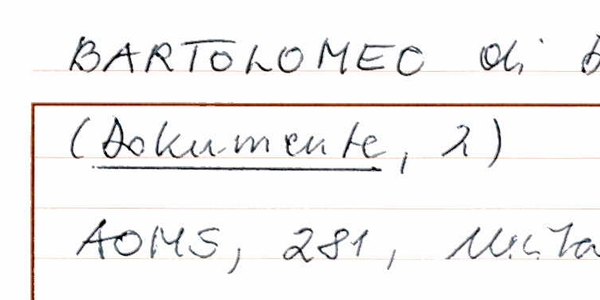 BARTOLOMEO di
(Dokumente, 2)
AOMS, 281,